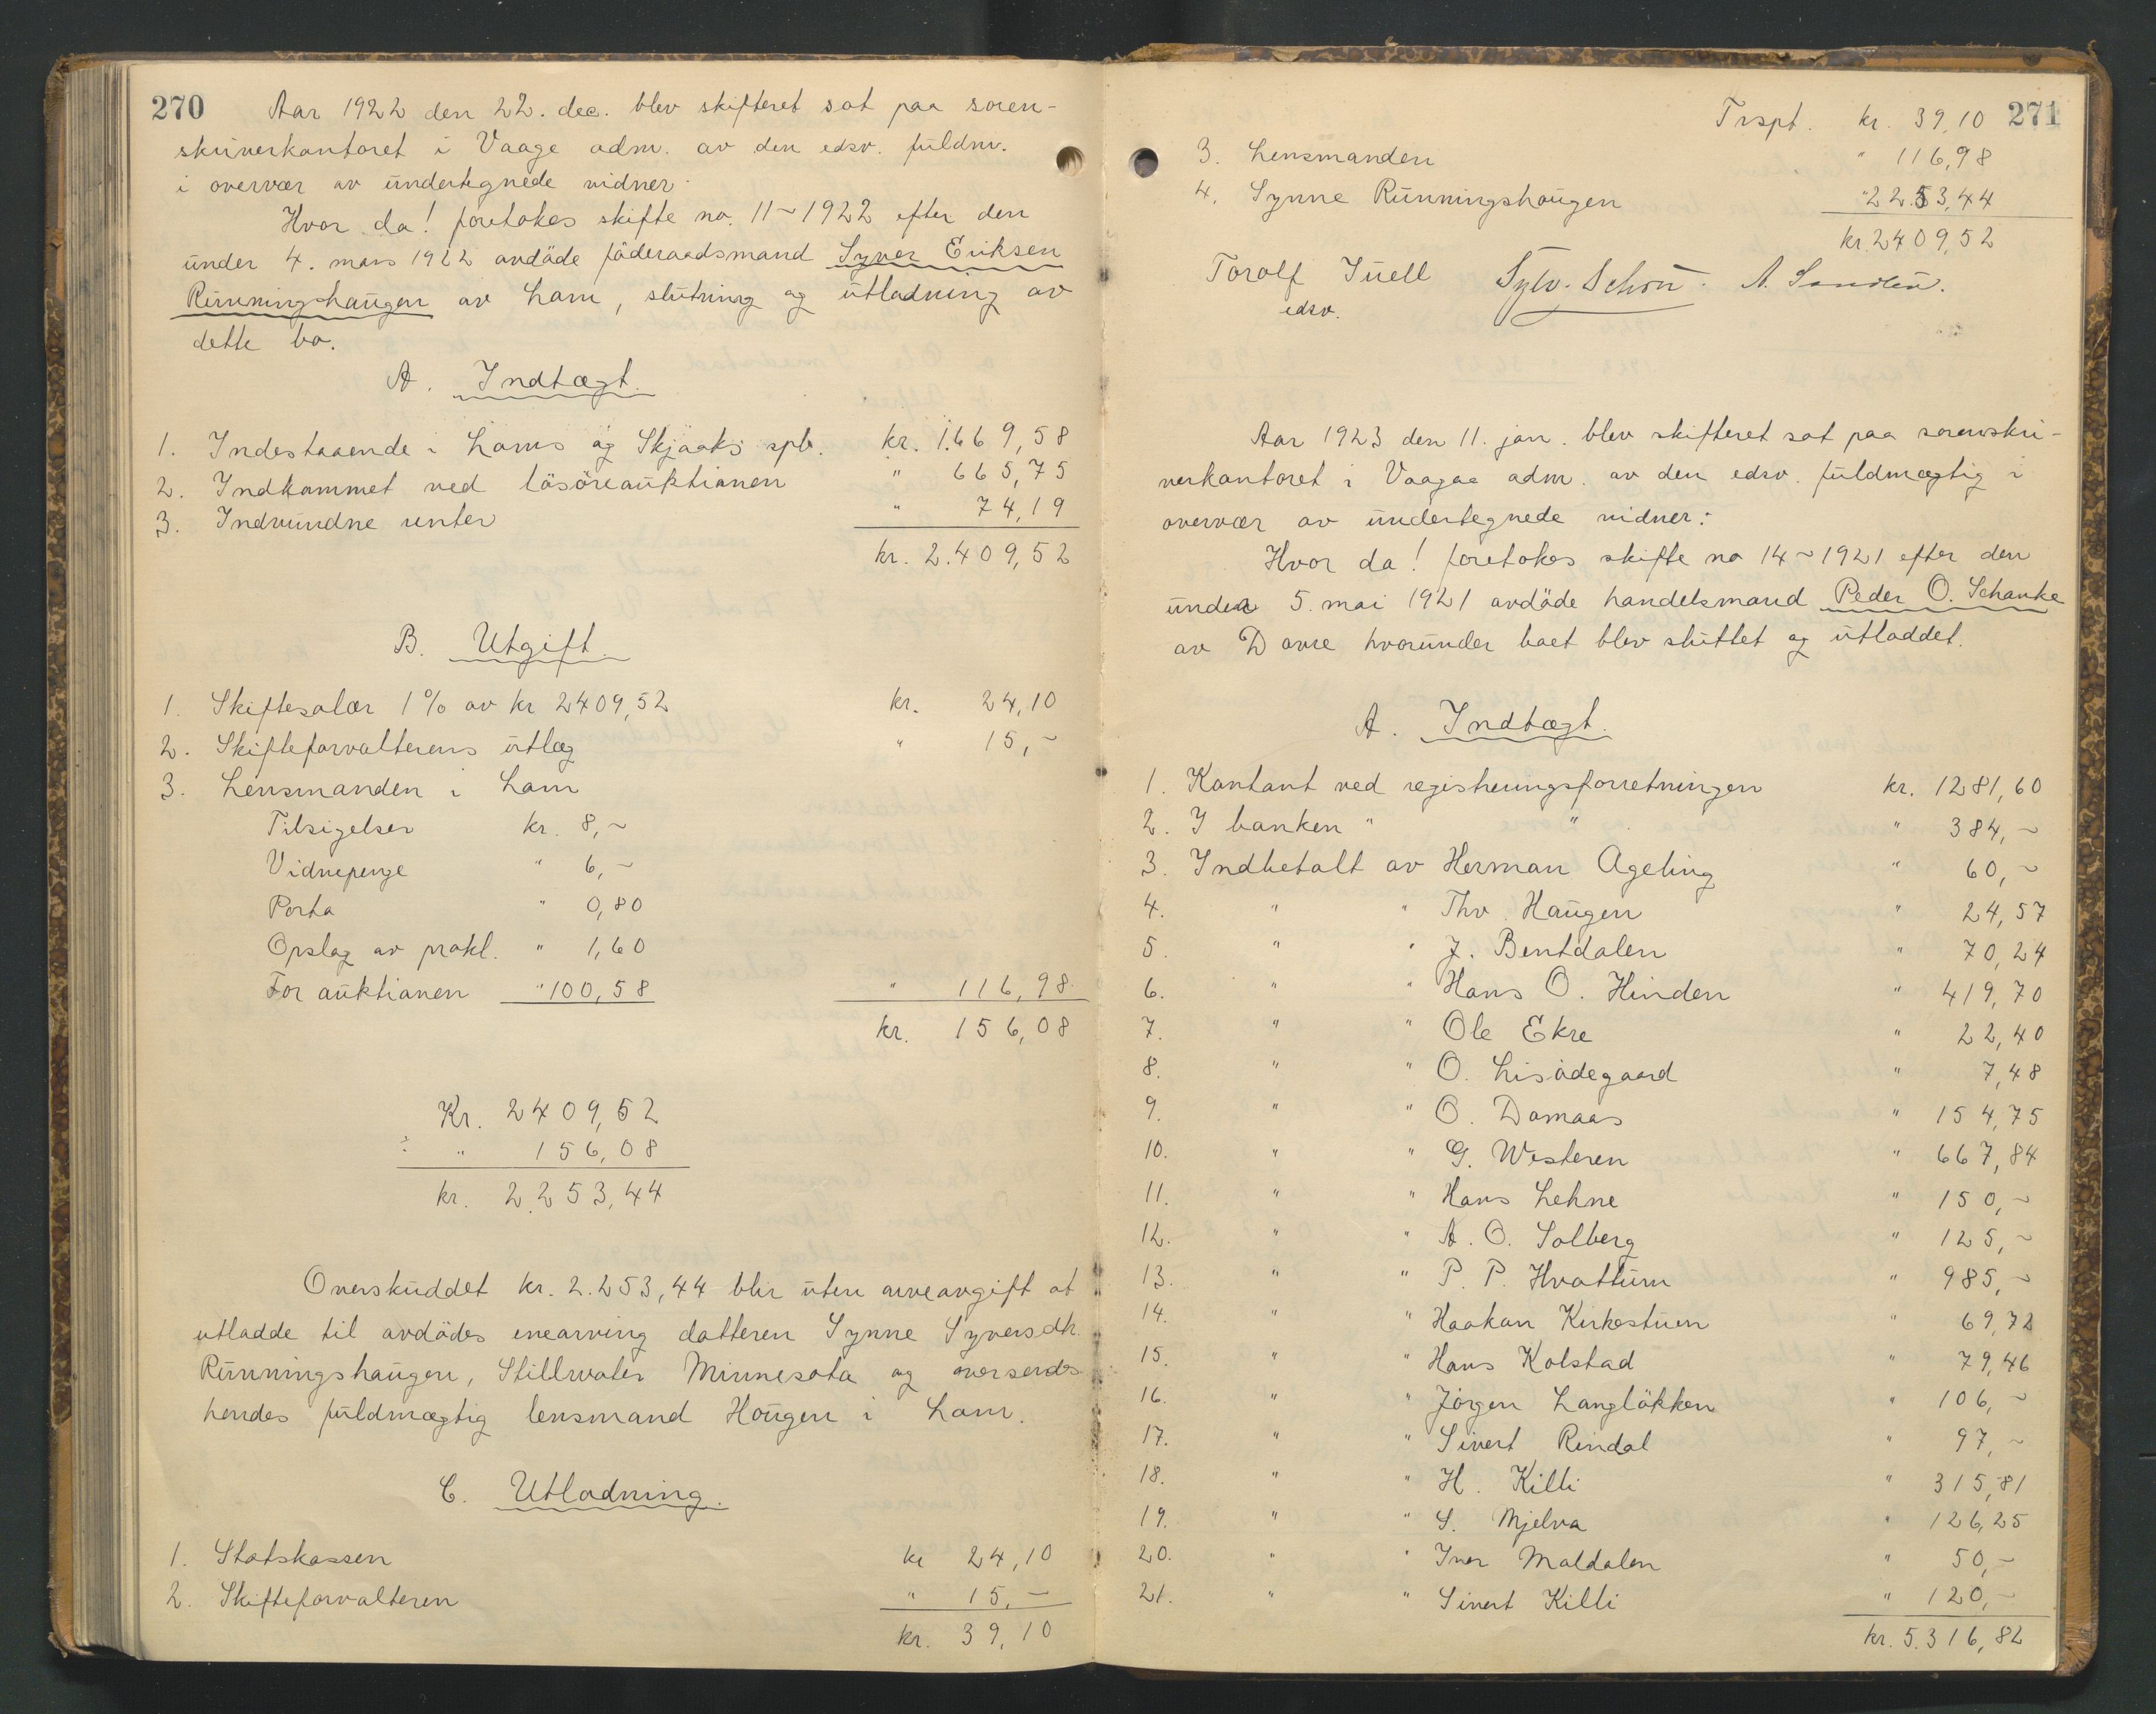 270
Aar 1922 den 22. dec. blev skifteret sat paa soren-
skriverkontoret i Vaage adm. av den edsv. fuldm.
i overvær av undertegnede vidner:
Hvor da! foretokes skifte no. 11 ~ 1922 efter den
under 4. mars 1922 avdöde föderaadsmand Syver Eriksen
Runningshaugen av Lom, slutning og utlodning av
dette bo.
A. Indtægt.
1. Indestaaende i Loms og Skjaaks spb. kr. 1.669,58
2. Indkommet ved lösöreauktionen " 665,75
3. Indvundne renter " 74,19
kr. 2.409,52
B. Utgift.
1. Skiftesalær 1% av kr 2409,52 kr. 24,10
2. Skifteforvalterens utlæg " 15,~
3. Lensmanden i Lom
Tilsigelser kr. 8,~
Vidnepenge " 6,~
Porto " 0,80
Opslag av prokl. " 1,60
For auktionen " 100,58 " 116,98
kr. 156,08
Kr. 2409,52
÷ " 156,08
kr. 2.253,44
Overskuddet kr. 2.253,44 blir uten arveavgift at
utlodde til avdödes enearving datteren Synne Syversdtr.
Runningshaugen, Stillwater Minnesota og oversendes
hendes fuldmægtig lensmand Hougen i Lom.
C. Utlodning.
1. Statskassen kr 24,10
2. Skifteforvalteren " 15,~
kr. 39,10
271
Trspt. kr. 39,10
3. Lensmanden " 116,98
4. Synne Runningshaugen " 2253,44
kr. 2409,52
Torolf Juell Sylv. Schou. A. Sandlien.
edsv.
Aar 1923 den 11. jan. blev skifteret sat paa sorenskri-
verkontoret i Vaagaa adm. av den edsv. fuldmægtig i
overvær av undertegnede vidner:
Hvor da! foretokes skifte no 14 ~ 1921 efter den
under 5. mai 1921 avdöde handelsmand Peder O. Schanke
av Dovre hvorunder boet blev sluttet og utloddet.
A. Indtægt.
1. Kontant ved registreringsforretningen kr. 1281,60
2. I banken " " " 384,~
3. Indbetalt av Herman Ageling " 60,~
4. " " Thv. Haugen " 24,57
5. " " J. Bentdalen " 70,24
6. " " Hans O. Hinden " 419,70
7. " " Ole Ekre " 22,40
8. " " O. Lisödegaard " 7,48
9. " " O. Domaas " 154,75
10. " " G. Westeren " 667,84
11. " " Hans Lehne " 150,~
12. " " A. O. Solberg " 125,~
13. " " P. P. Hvattum " 985,~
14. " " Haakon Kirkestuen " 69,72
15. " " Hans Kolstad " 79,46
16. " " Jörgen Langlökken " 106,~
17. " " Sivert Rindal " 97,~
18. " " H. Killi " 315,81
19. " " S. Mjelva " 126,25
20. " " Iver Moldalen " 50,~
21. " " Sivert Killi " 120,~
kr. 5.316,82